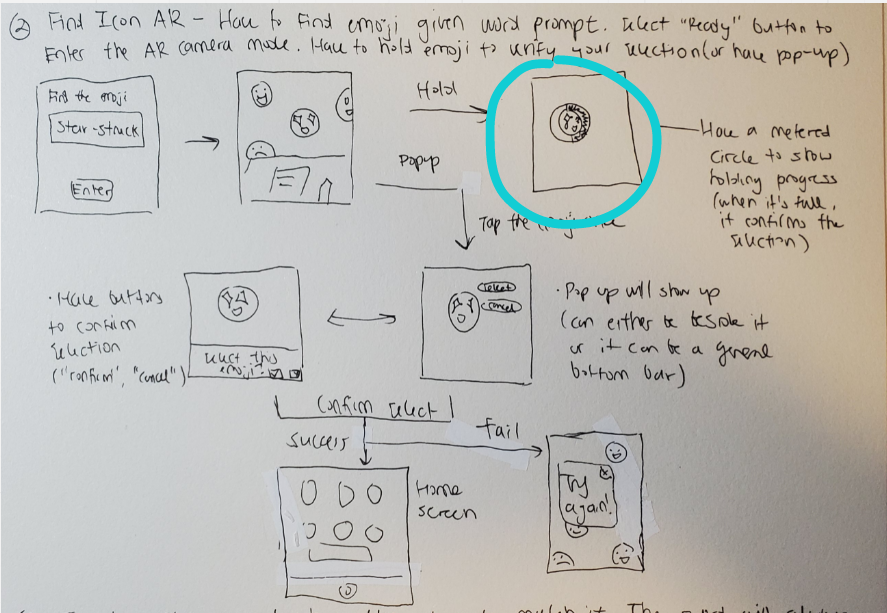 ② Find Icon AR - Have to find emoji given word prompt. Select "Ready" button to
Enter the AR camera mode. Have to hold emoji to verify your selection (or have pop-up)
Find the emoji
Star-struck
Enter
Hold
Popup
- Have a metered
circle to show
holding progress
(when it's full,
it confirms the
selection)
Tap the
· Have buttons
to confirm
selection
("confirm", "cancel")
select this
emoji?
select
cancel
· Pop up will show up
(can either be beside it
or it can be a general
bottom bar)
Confirm select
success
fail
Home
screen
Try
again!